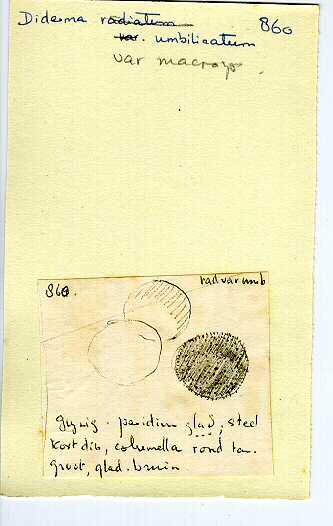 Diderma radiatum 860
var. umbilicatum
var macro
860. rad var umb
peridium glad, steel
kort dik, columella rond
groot, glad. bruin